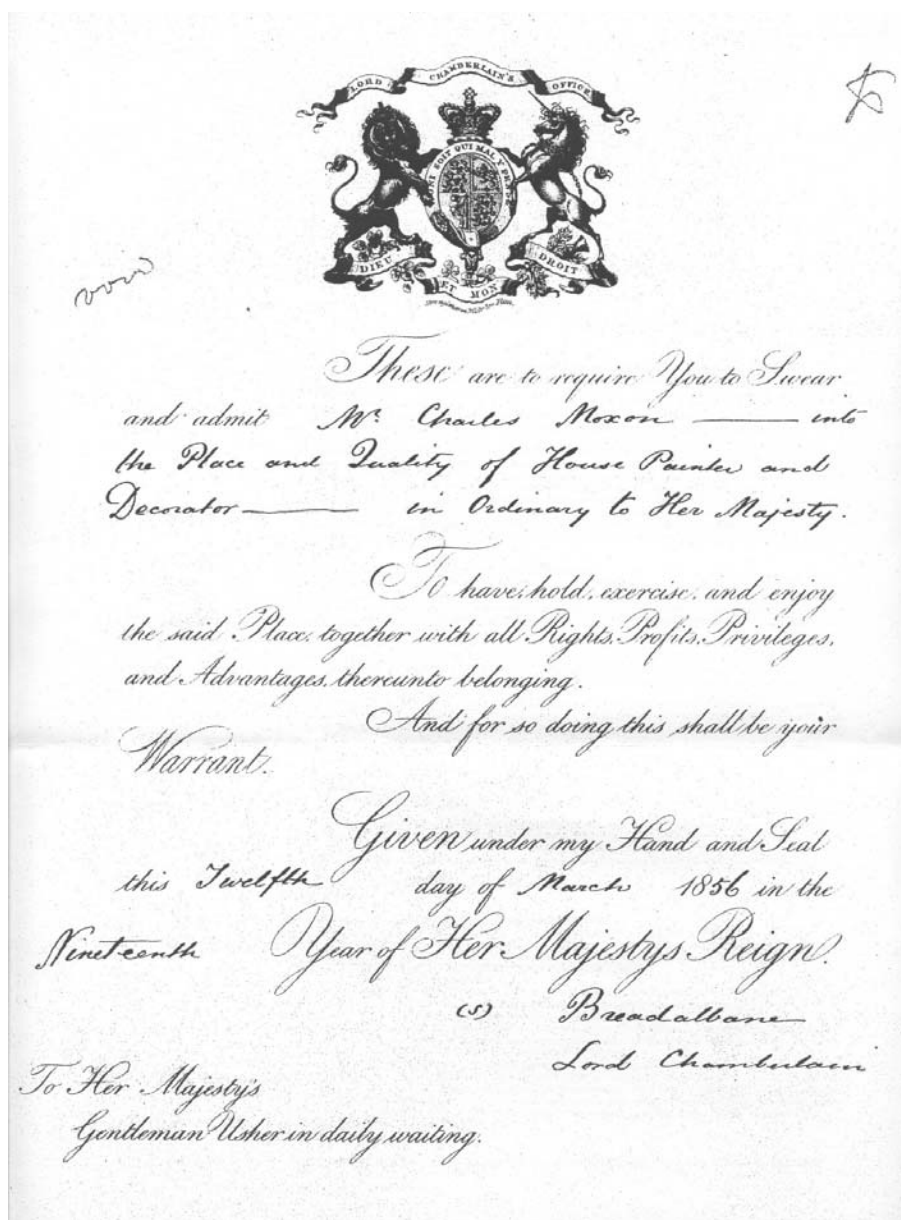 LORD CHAMBERLAIN'S OFFICE
HONI SOIT QUI MAL Y PENSE
DIEU ET MON DROIT
These are to require You to Swear
and admit Mr. Charles Moxon — into
the Place and Quality of House Painter and
Decorator — in Ordinary to Her Majesty.
To have, hold, exercise, and enjoy
the said Place, together with all Rights, Profits, Privileges,
and Advantages, thereunto belonging.
And for so doing this shall be your
Warrant.
Given under my Hand and Seal
this Twelfth day of March 1856 in the
Nineteenth Year of Her Majestys Reign.
(s) Breadalbane
Lord Chamberlain
To Her Majesty's
Gentleman Usher in daily waiting.